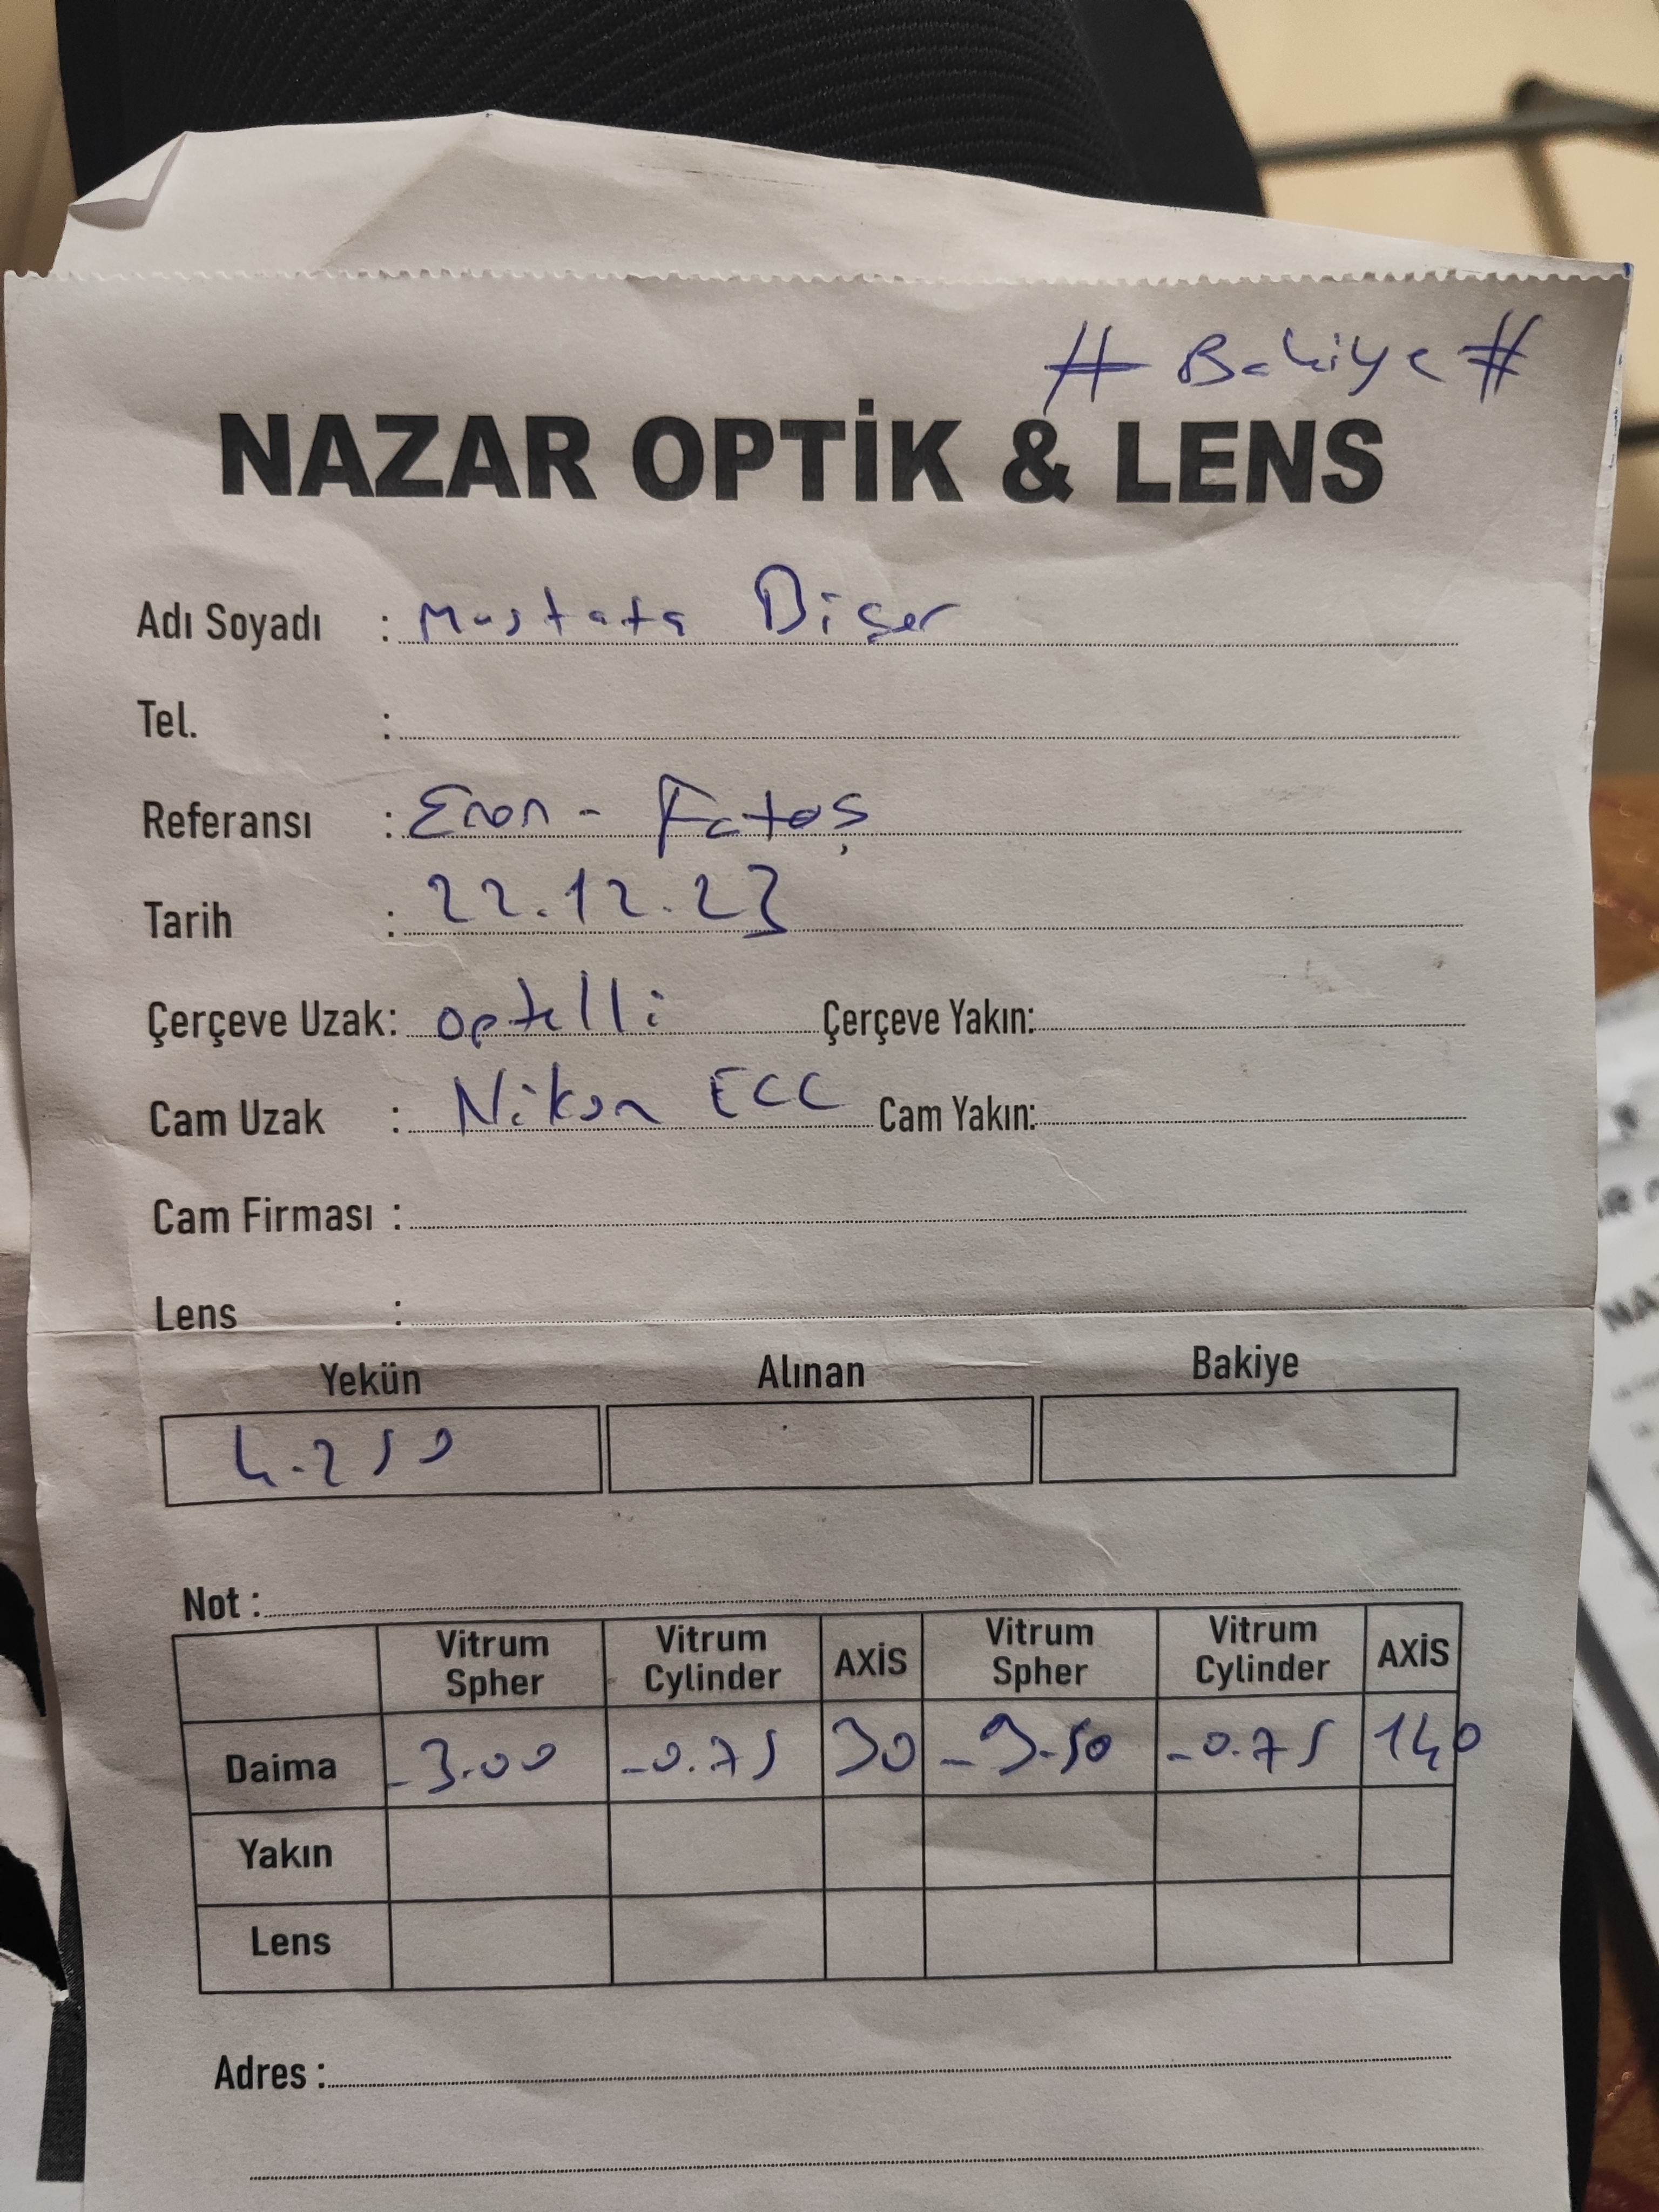 # Bakiye #
NAZAR OPTİK & LENS
Adı Soyadı : Mustafa Dişer
Tel. :
Referansı : Eren - Fatoş
Tarih : 22.12.23
Çerçeve Uzak: optelli Çerçeve Yakın:
Cam Uzak : Nikon ECC Cam Yakın:
Cam Firması :
Lens :
Yekün Alınan Bakiye
4.250
Not :
Vitrum Spher Vitrum Cylinder AXİS Vitrum Spher Vitrum Cylinder AXİS
Daima -3.00 -0.75 30 -3.50 -0.75 140
Yakın
Lens
Adres :